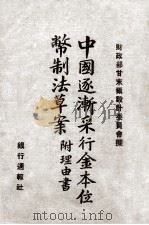 財政部甘末爾設計委員會擬
中國逐漸采行金本位
幣制法草案 附理由書
銀行週報社